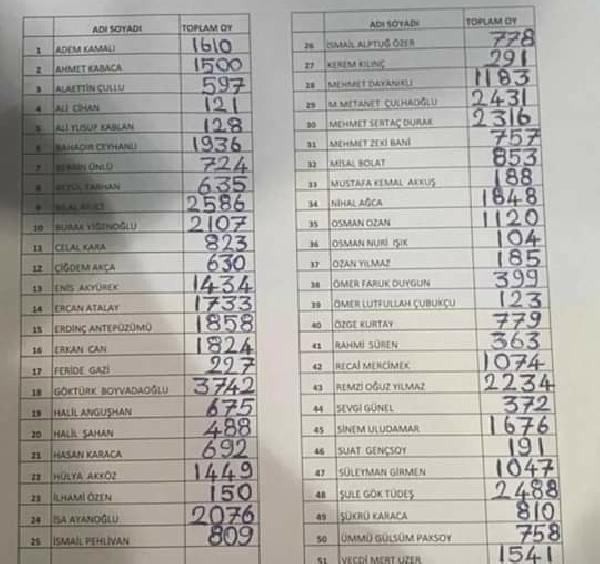 ADI SOYADI TOPLAM OY
1 ADEM KAMALI 1610
2 AHMET KABACA 1500
3 ALAETTİN ÇULLU 597
4 ALİ CİHAN 121
5 ALİ YUSUF KABLAN 128
6 BAHADIR CEYHANLI 1936
7 ÜNLÜ 724
8 635
9 2586
10 BURAK YİĞENOĞLU 2107
11 CELAL KARA 823
12 ÇİĞDEM AKÇA 630
13 ENİS AKYÜREK 1434
14 ERCAN ATALAY 1733
15 ERDİNÇ ANTEPÜZÜMÜ 1858
16 ERKAN CAN 1824
17 FERİDE GAZİ 227
18 GÖKTÜRK BOYVADAOĞLU 3742
19 HALİL ANGUŞHAN 675
20 HALİL ŞAHAN 488
21 HASAN KARACA 692
22 HÜLYA AKKÖZ 1449
23 İLHAMİ ÖZEN 150
24 İSA AYANOĞLU 2076
25 İSMAİL PEHLİVAN 809
ADI SOYADI TOPLAM OY
26 İSMAİL ALPTUĞ ÖZER 778
27 KEREM KILINÇ 291
28 MEHMET DAYANIKLI 1183
29 M.METANET ÇULHAOĞLU 2431
30 MEHMET SERTAÇ DURAK 2316
31 MEHMET ZEKİ BANİ 757
32 MİSAL BOLAT 853
33 MUSTAFA KEMAL AKKUŞ 188
34 NİHAL AĞCA 1848
35 OSMAN OZAN 1120
36 OSMAN NURİ IŞIK 104
37 OZAN YILMAZ 185
38 ÖMER FARUK DUYGUN 399
39 ÖMER LUTFULLAH ÇUBUKÇU 123
40 ÖZGE KURTAY 779
41 RAHMİ SÜREN 363
42 RECAİ MERCİMEK 1074
43 REMZİ OĞUZ YILMAZ 2234
44 SEVGİ GÜNEL 372
45 SİNEM ULUDAMAR 1676
46 SUAT GENÇSOY 191
47 SÜLEYMAN GİRMEN 1047
48 ŞULE GÖK TÜDEŞ 2488
49 ŞÜKRÜ KARACA 810
50 ÜMMÜ GÜLSÜM PAKSOY 758
51 VECDİ MERT UZER 1541